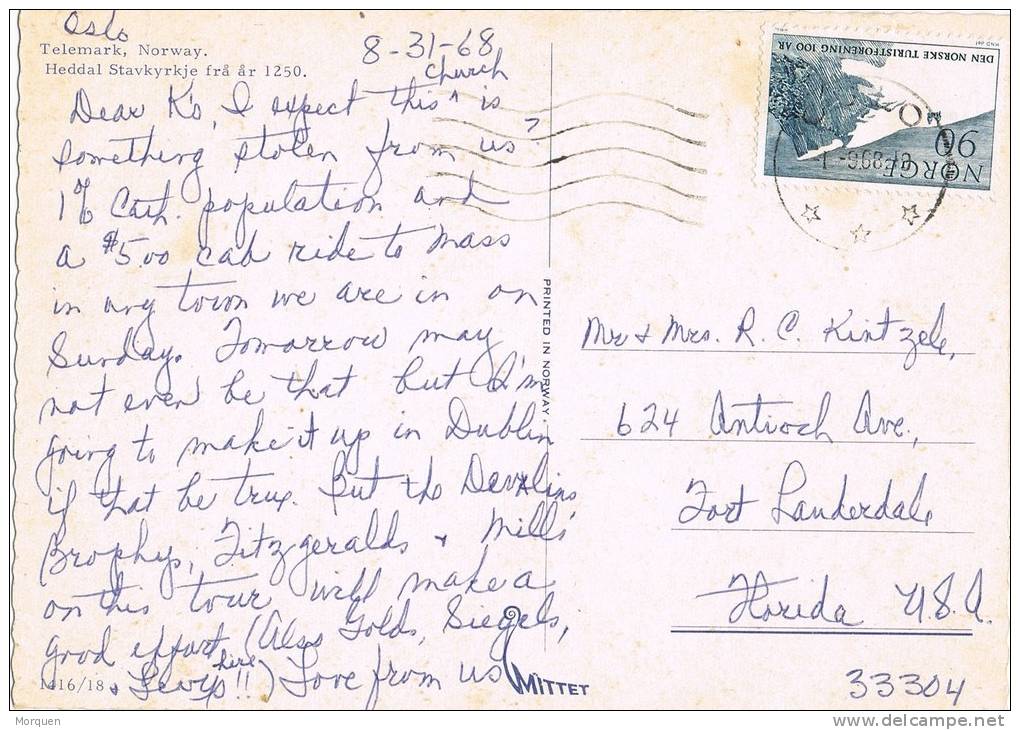 Oslo
Telemark, Norway.
Heddal Stavkyrkje frå år 1250.
8-31-68
church
Dear K's, I expect this ^ is
something stolen from us?
1% Cath. population and
a $5.00 cab ride to Mass
in any town we are in on
Sunday. Tomarrow may
not even be that but I'm
going to make it up in Dublin
if that be true. But the Devlins
Brophys, Fitzgeralds & Mills'
on this tour will make a
good effort. (Also Golds, Siegels,
here
& Levys!!) Love from us
1416/18
MITTET
PRINTED IN NORWAY
DEN NORSKE TURISTFORENING 100 ÅR
NORGE 90
OSLO
Mr & Mrs. R. C. Kintzele,
624 Antioch Ave.,
Fort Lauderdale
Florida U.S.A.
33304
Morquen
delcampe.net